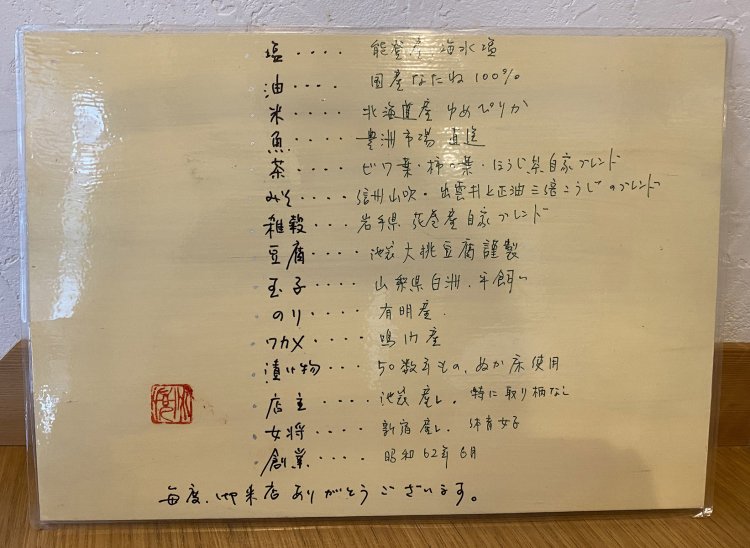 塩・・・・ 能登産 海水塩
油・・・・ 国産なたね100%
米・・・・ 北海道産 ゆめぴりか
魚・・・・ 豊洲市場 直送
茶・・・・ ビワ葉・柿の葉・ほうじ茶自家ブレンド
みそ・・・・ 信州山吹・出雲井上正油三倍こうじのブレンド
雑穀・・・・ 岩手県 花巻産自家ブレンド
豆腐・・・・ 池袋大桃豆腐謹製
玉子・・・・ 山梨県白洲、平飼い
のり・・・・ 有明産.
ワカメ・・・・ 鳴門産
漬け物・・・・ 50数年もの、ぬか床使用
店主・・・・ 池袋産し、特に取り柄なし
女将・・・・ 新宿産し、体育女子
創業・・・・ 昭和62年6月
毎度、御来店ありがとうございます。